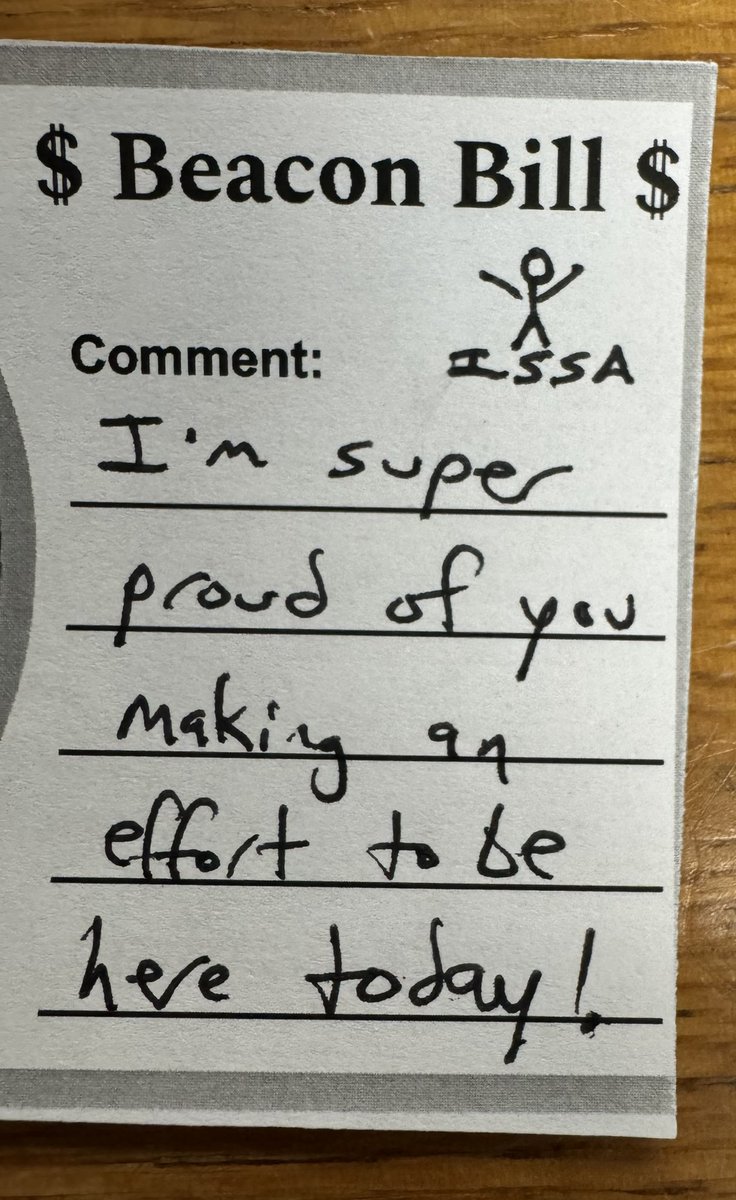 $ Beacon Bill $
Comment:
ISSA
I'm super
proud of you
making an
effort to be
here today!